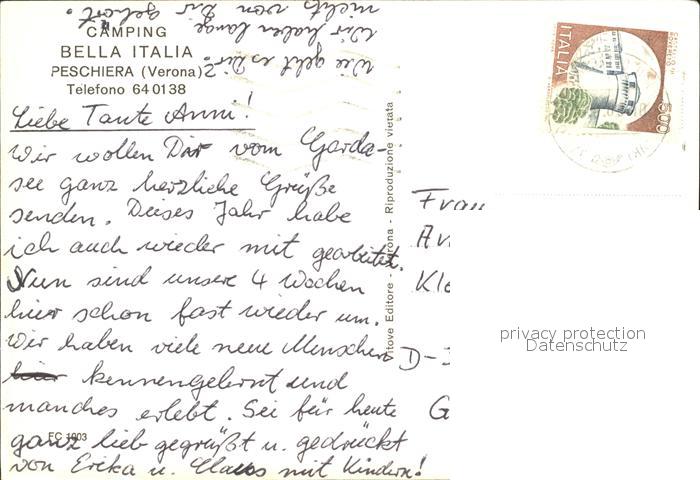 CAMPING
BELLA ITALIA
PESCHIERA (Verona)
Telefono 640138
Liebe Tante Anni!
Wir wollen Dir vom Garda-
see ganz herzliche Grüße
senden. Dieses Jahr habe
ich auch wieder mit gearbeitet.
Nun sind unsere 4 Wochen
hier schon fast wieder um.
Wir haben viele neue Menschen
hier kennengelernt und
manches erlebt. Sei für heute
ganz lieb gegrüßt u. gedrückt
von Erika u. Claus mit Kindern!
Wie geht es Dir?
Wir haben lange
nichts von Dir gehört.
FC 1003
Vitove Editore - Verona - Riproduzione vietata
ITALIA
500
Frau
D-
G
privacy protection
Datenschutz